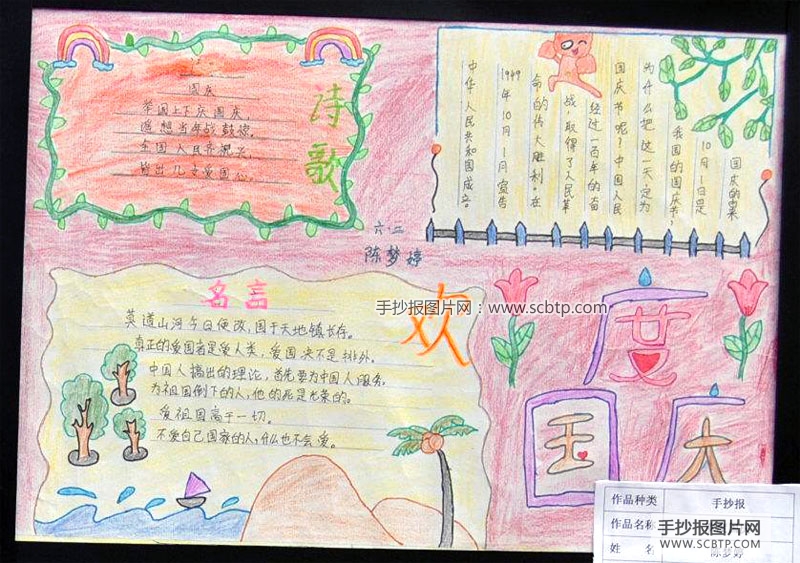 国庆
举国上下庆国庆,
遥想当年战鼓擂。
全国人民齐
儿女爱国心
诗歌
国庆的由来
10月1日是
我国的国庆节。
为什么把这一天定为
国庆节呢?中国人民
经过一百年的奋
战,取得了人民革
命的伟大胜利。在
1949年10月1日宣告
中华人民共和国成立。
六·二
陈梦婷
名言
英道山河今日便改,国于天地镇长存。
真正的爱国者是爱人类,爱国决不是排外。
中国人搞出的理论,首先要为中国人服务。
为祖国倒下的人,他的死是光荣的。
爱祖国高于一切。
不爱自己国家的人,什么也不会爱。
手抄报图片网:www.scbtp.com
欢度
国庆
作品种类 手抄报
作品名称 手抄报图片网
WWW.SCBTP.COM
姓 名 陈梦婷